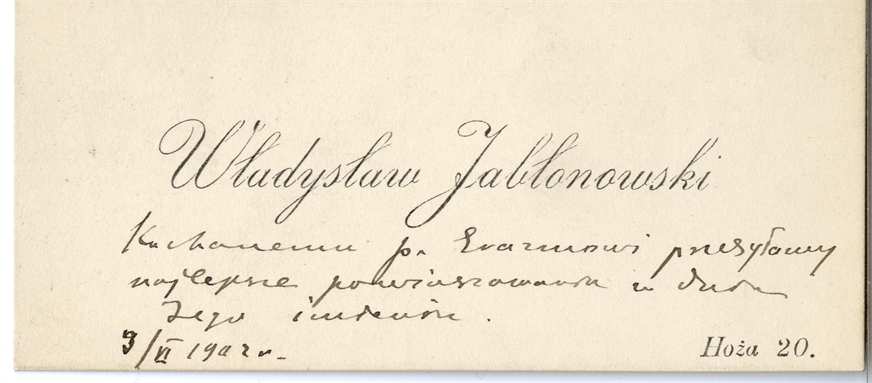 Władysław Jabłonowski
Kochanemu p. Erazmowi przesyłamy
najlepsze powinszowania w dniu
Jego imienin.
3/VI 1902 r.
Hoża 20.